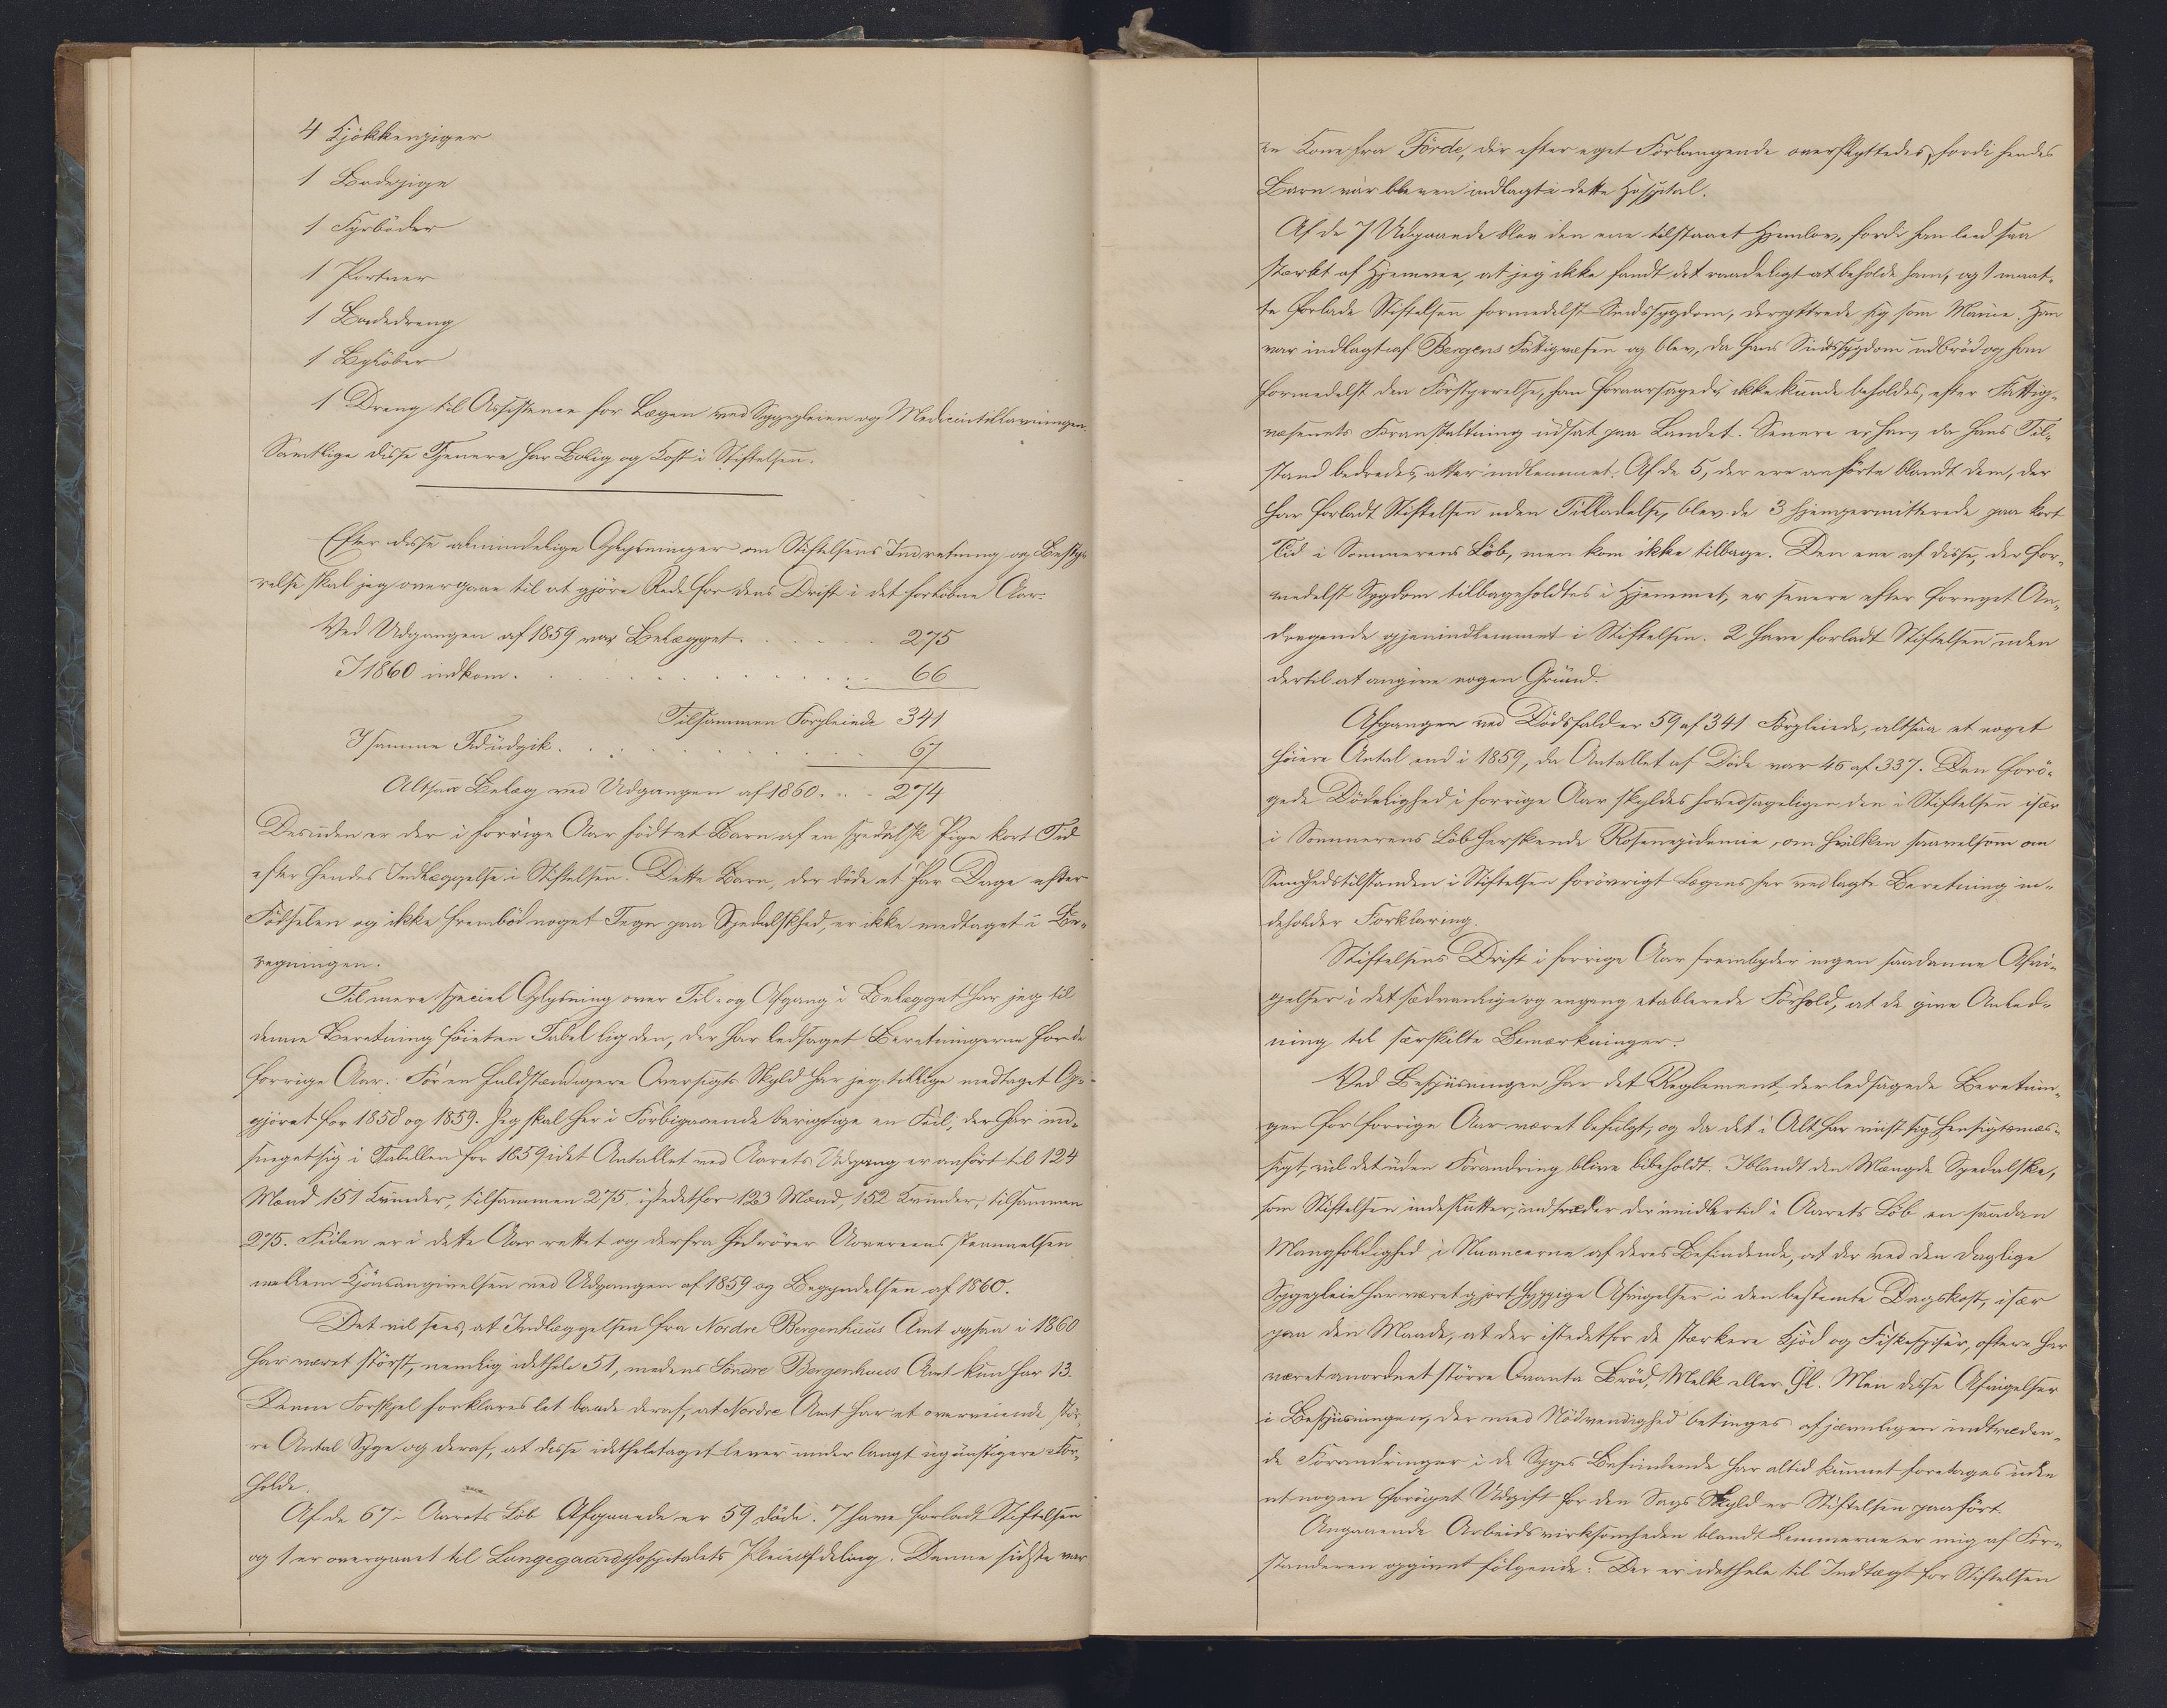 4 Kjökkenpiger
1 Badepige
1 Fyrböder
1 Portner
1 Badedreng
1 Byløber
1 Dreng til Assistence for Lægen ved Sygepleien og Medicintillavningen.
Samtlige disse Tjenere har Bolig og Kost i Stiftelsen.
Efter disse almindelige Oplysninger om Stiftelsens Indretning og Besty-
relse skal jeg overgaae til at gjöre Rede for dens Drift i det forløbne Aar.
Ved Udgangen af 1859 var Belægget . . . . . 275
I 1860 indkom . . . . . . . . . 66
Tilsammen Forpleiede 341
I samme Tid udgik . . . . . . . 67
Altsaa Belæg ved Udgangen af 1860 . . . 274
Desuden er der i forrige Aar födt et Barn af en spedalsk Pige kort Tid
efter hendes Indlæggelse i Stiftelsen. Dette Barn, der döde et Par Dage efter
Födselen og ikke fremböd noget Tegn paa Spedalskhed, er ikke medtaget i Be-
regningen.
Til mere speciel Oplysning over Til- og Afgang i Belægget har jeg til
denne Beretning föiet en Tabel lig den, der har ledsaget Beretningerne for de
forrige Aar. For en fuldstændigere Oversigts Skyld har jeg tillige medtaget Op-
gjöret for 1858 og 1859. Jeg skal her i Forbigaaende berigtige en Feil, der har ind-
sneget sig i Tabellen for 1859 idet Antallet ved Aarets Udgang er anfört til 124
Mænd 151 Kvinder, tilsammen 275 istedetfor 123 Mænd, 152 Kvinder, tilsammen
275. Feilen er i dette Aar rettet og derfra hidrörer Uovereensstemmelsen
mellem Kjönsangivelsen ved Udgangen af 1859 og Begyndelsen af 1860.
Det vil sees, at Indlæggelsen fra Nordre Bergenhuus Amt ogsaa i 1860
har været störst, nemlig idethele 51, medens Söndre Bergenhuus Amt kun har 13.
Denne Forskjel forklares let baade deraf, at Nordre Amt har et overveiende stör-
re Antal Syge og deraf, at disse idetheletaget lever under langt ugunstigere For-
holde.
Af de 67 i Aarets Löb Afgaaede er 59 döde. 7 have forladt Stiftelsen
og 1 er overgaaet til Lungegaardshospitalets Pleieafdeling. Denne sidste var
en Kone fra Förde, der efter eget Forlangende overflyttedes, fordi hendes
Barn var bleven indlagt i dette Hospital.
Af de 7 Udgaaede blev den ene tilstaaet Hjemlov, fordi han leed saa
stærkt af Hjemvee, at jeg ikke fandt det raadeligt at beholde ham, og 1 maat-
te forlade Stiftelsen formedelst Sindssygdom, der yttrede sig som Manie. Han
var indlagt af Bergens Fattigvæsen og blev, da hans Sindssygdom udbröd og han
formedelst den Forstyrrelse, han foraarsagede, ikke kunde beholdes, efter Fattig-
væsenets Foranstaltning udsat paa Landet. Senere er han, da hans Til-
stand bedredes, atter indkommet. Af de 5, der ere anförte blandt dem, der
har forladt Stiftelsen uden Tilladelse, blev de 3 hjempermitterede paa kort
Tid i Sommerens Löb, men kom ikke tilbage. Den ene af disse, der for-
medelst Sygdom tilbageholdtes i Hjemmet, er senere efter fornyet An-
dragende gjenindkommet i Stiftelsen. 2 have forladt Stiftelsen uden
dertil at angive nogen Grund.
Afgangen ved Dödsfald er 59 af 341 Forpleiede, altsaa et noget
höiere Antal end i 1859, da Antallet af Döde var 46 af 337. Den forö-
gede Dödelighed i forrige Aar skyldes hovedsageligen den i Stiftelsen især
i Sommerens Löb herskende Rosenepidemie, om hvilken saavelsom om
Sundhedstilstanden i Stiftelsen forövrigt Lægens her vedlagte Beretning in-
deholder Forklaring.
Stiftelsens Drift i forrige Aar frembyder ingen saadanne Afvi-
gelser i det sædvanlige og engang etablerede Forhold, at de give Anled-
ning til særskilte Bemærkninger.
Ved Bespiisningen har det Reglement, der ledsagede Beretnin-
gen for forrige Aar været befulgt, og da det i Alt har viist sig hensigtsmæs-
sigt, vil det uden Forandring blive bibeholdt. Iblandt den Mængde Spedalske,
som Stiftelsen indeslutter, indtræder der imidlertid i Aarets Löb en saadan
Mangfoldighed i Nuancerne af deres Befindende, at der ved den daglige
Sygepleie har været gjort hyppige Afvigelser i den bestemte Dagskost, især
paa den Maade, at der istedetfor de stærkere Kjöd og Fiskespiser, oftere har
været anordnet större Qvanta Bröd, Melk eller Öl. Men disse Afvigelser
i Bespiisningen, der med Nödvendighed betinges af jævnligen indtræden-
de Forandringer i de Syges Befindende har altid kunnet foretages uden
at nogen foröget Udgift for den Sags Skyld er Stiftelsen paafört.
Angaaende Arbeidsvirksomheden blandt Lemmerne er mig af For-
standeren opgivet fölgende: Der er idethele til Indtægt for Stiftelsen